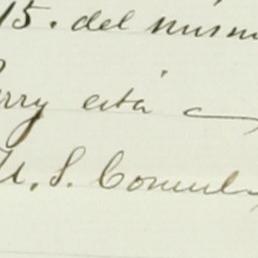 15. del mism
rry está
U. S. Consul